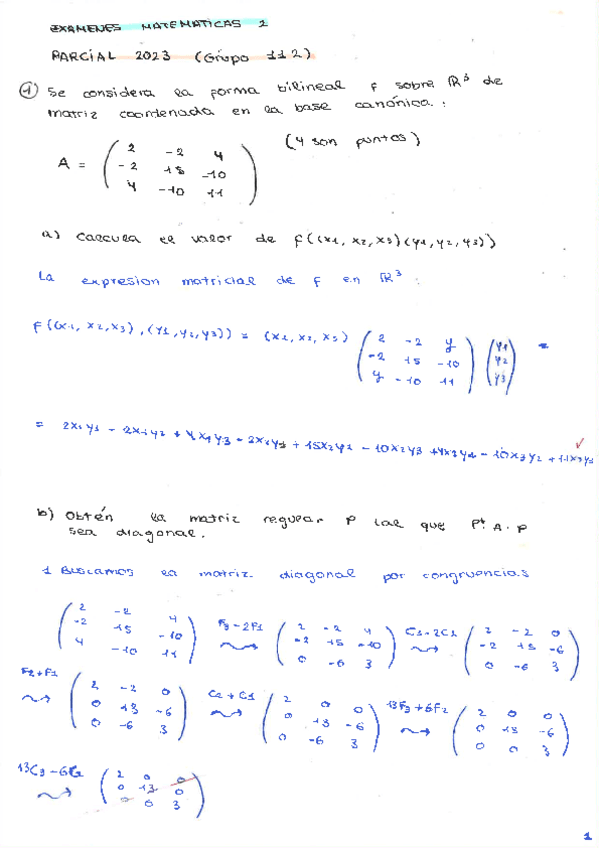 EXAMENES MATEMATICAS 2
PARCIAL 2023 (Grupo 112)
1 Se considera la forma bilineal f sobre R³ de
matriz coordenada en la base canónica:
A = ( 2 -2 4 (4 son puntos)
-2 15 -10
4 -10 11 )
a) Calcula el valor de f((x1, x2, x3)(y1, y2, y3))
La expresion matricial de f en R³:
f((x1, x2, x3), (y1, y2, y3)) = (x1, x2, x3) ( 2 -2 4 ) ( y1 ) =
( -2 15 -10 ) ( y2 )
( 4 -10 11 ) ( y3 )
= 2x1y1 - 2x1y2 + 4x1y3 - 2x2y1 + 15x2y2 - 10x2y3 + 4x3y1 - 10x3y2 + 11x3y3
b) Obtén la matriz regular P tal que Pt. A. P
sea diagonal.
1 Buscamos la matriz diagonal por congruencias
( 2 -2 4 ) F3-2F1 ( 2 -2 4 ) C3-2C1 ( 2 -2 0 )
( -2 15 -10 ) ( -2 15 -10 ) ( -2 15 -6 )
( 4 -10 11 ) ( 0 -6 3 ) ( 0 -6 3 )
F2+F1 ( 2 -2 0 ) C2+C1 ( 2 0 0 ) 13F3+6F2 ( 2 0 0 )
( 0 13 -6 ) ( 0 13 -6 ) ( 0 13 -6 )
( 0 -6 3 ) ( 0 -6 3 ) ( 0 0 3 )
13C3-6C2 ( 2 0 0 )
( 0 13 0 )
( 0 0 3 )
1